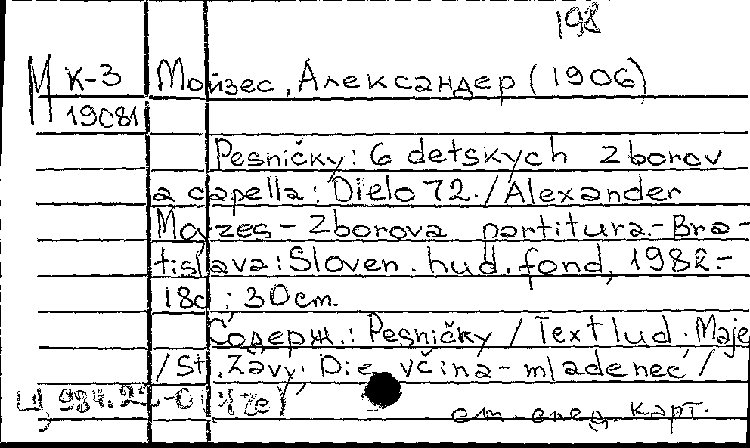 198
М К-3 Мойзес, Александер (1906)
19081
Pesničky: 6 detskych zborov
a capella: Dielo 72. / Alexander
Moyzes - Zborova partitura.- Bra-
tislava: Sloven. hud. fond, 1982.-
18с ; 30cm.
Содерж.: Pesničky / Text lud; Maje
/ St. Žavy; Die včina - mladenec /
см след. карт.